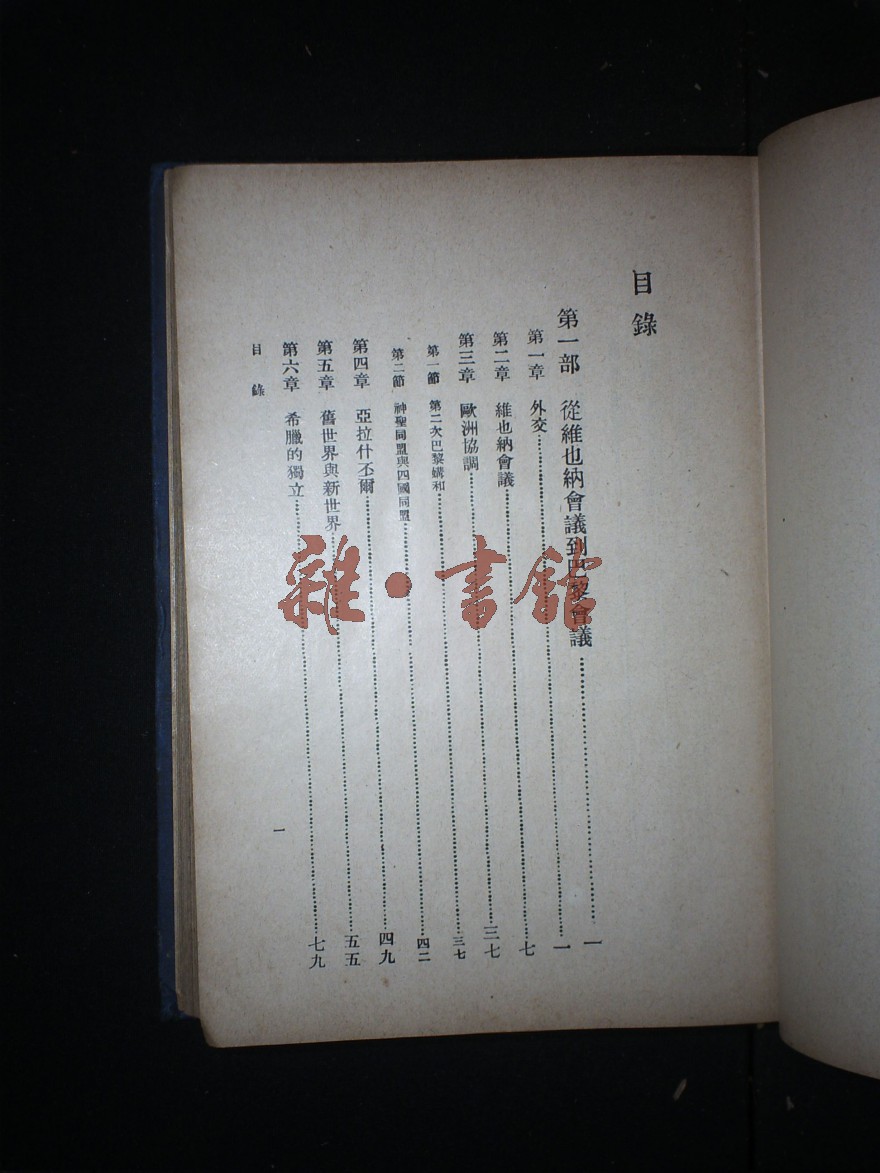 目錄
第一部 從維也納會議到巴黎會議……一
第一章 外交……一
第二章 維也納會議……七
第三章 歐洲協調……三七
第一節 第二次巴黎媾和……三七
第二節 神聖同盟與四國同盟……四二
第四章 亞拉什丕爾……四九
第五章 舊世界與新世界……五五
第六章 希臘的獨立……七九
目錄
一
雜·書館